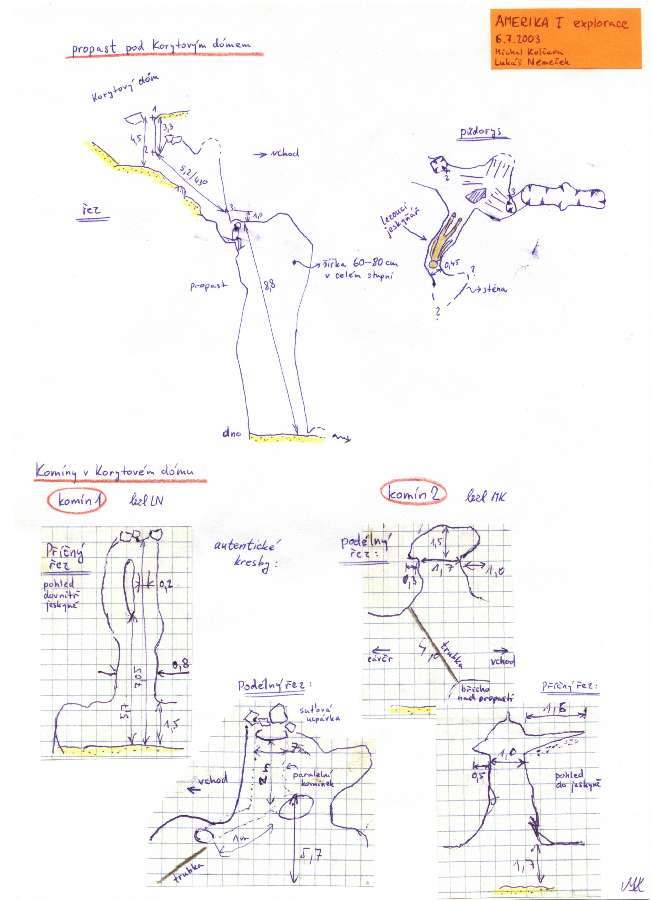 AMERIKA I explorace
6.7.2003
Michal Kolčava
Lukáš Nemeček
propast pod Korytovým dómem
Korytový dóm
1
3,3
4,5
2
→ vchod
5,2/430
3
1,0
řez
propast
šířka 60-80 cm
v celém stupni
8,8
dno
půdorys
2
3
lezoucí
jeskyňář
0,45
?
→ stěna
?
Komíny v Korytovém dómu
komín 1
lezl LN
komín 2
lezl MK
autentické
kresby:
Příčný
řez
pohled
dovnitř
jeskyně
0,2
0,8
5,7
1,5
podélný
řez:
1,5
1,7
1,0
0,3
4,0
trubka
závěr
vchod
břicho
nad propastí
Podélný řez:
suťová
ucpávka
paralelní
komínek
vchod
2 m
1m
5,7
trubka
Příčný řez:
1,0
0,5
pohled
do jeskyně
1,7
MK